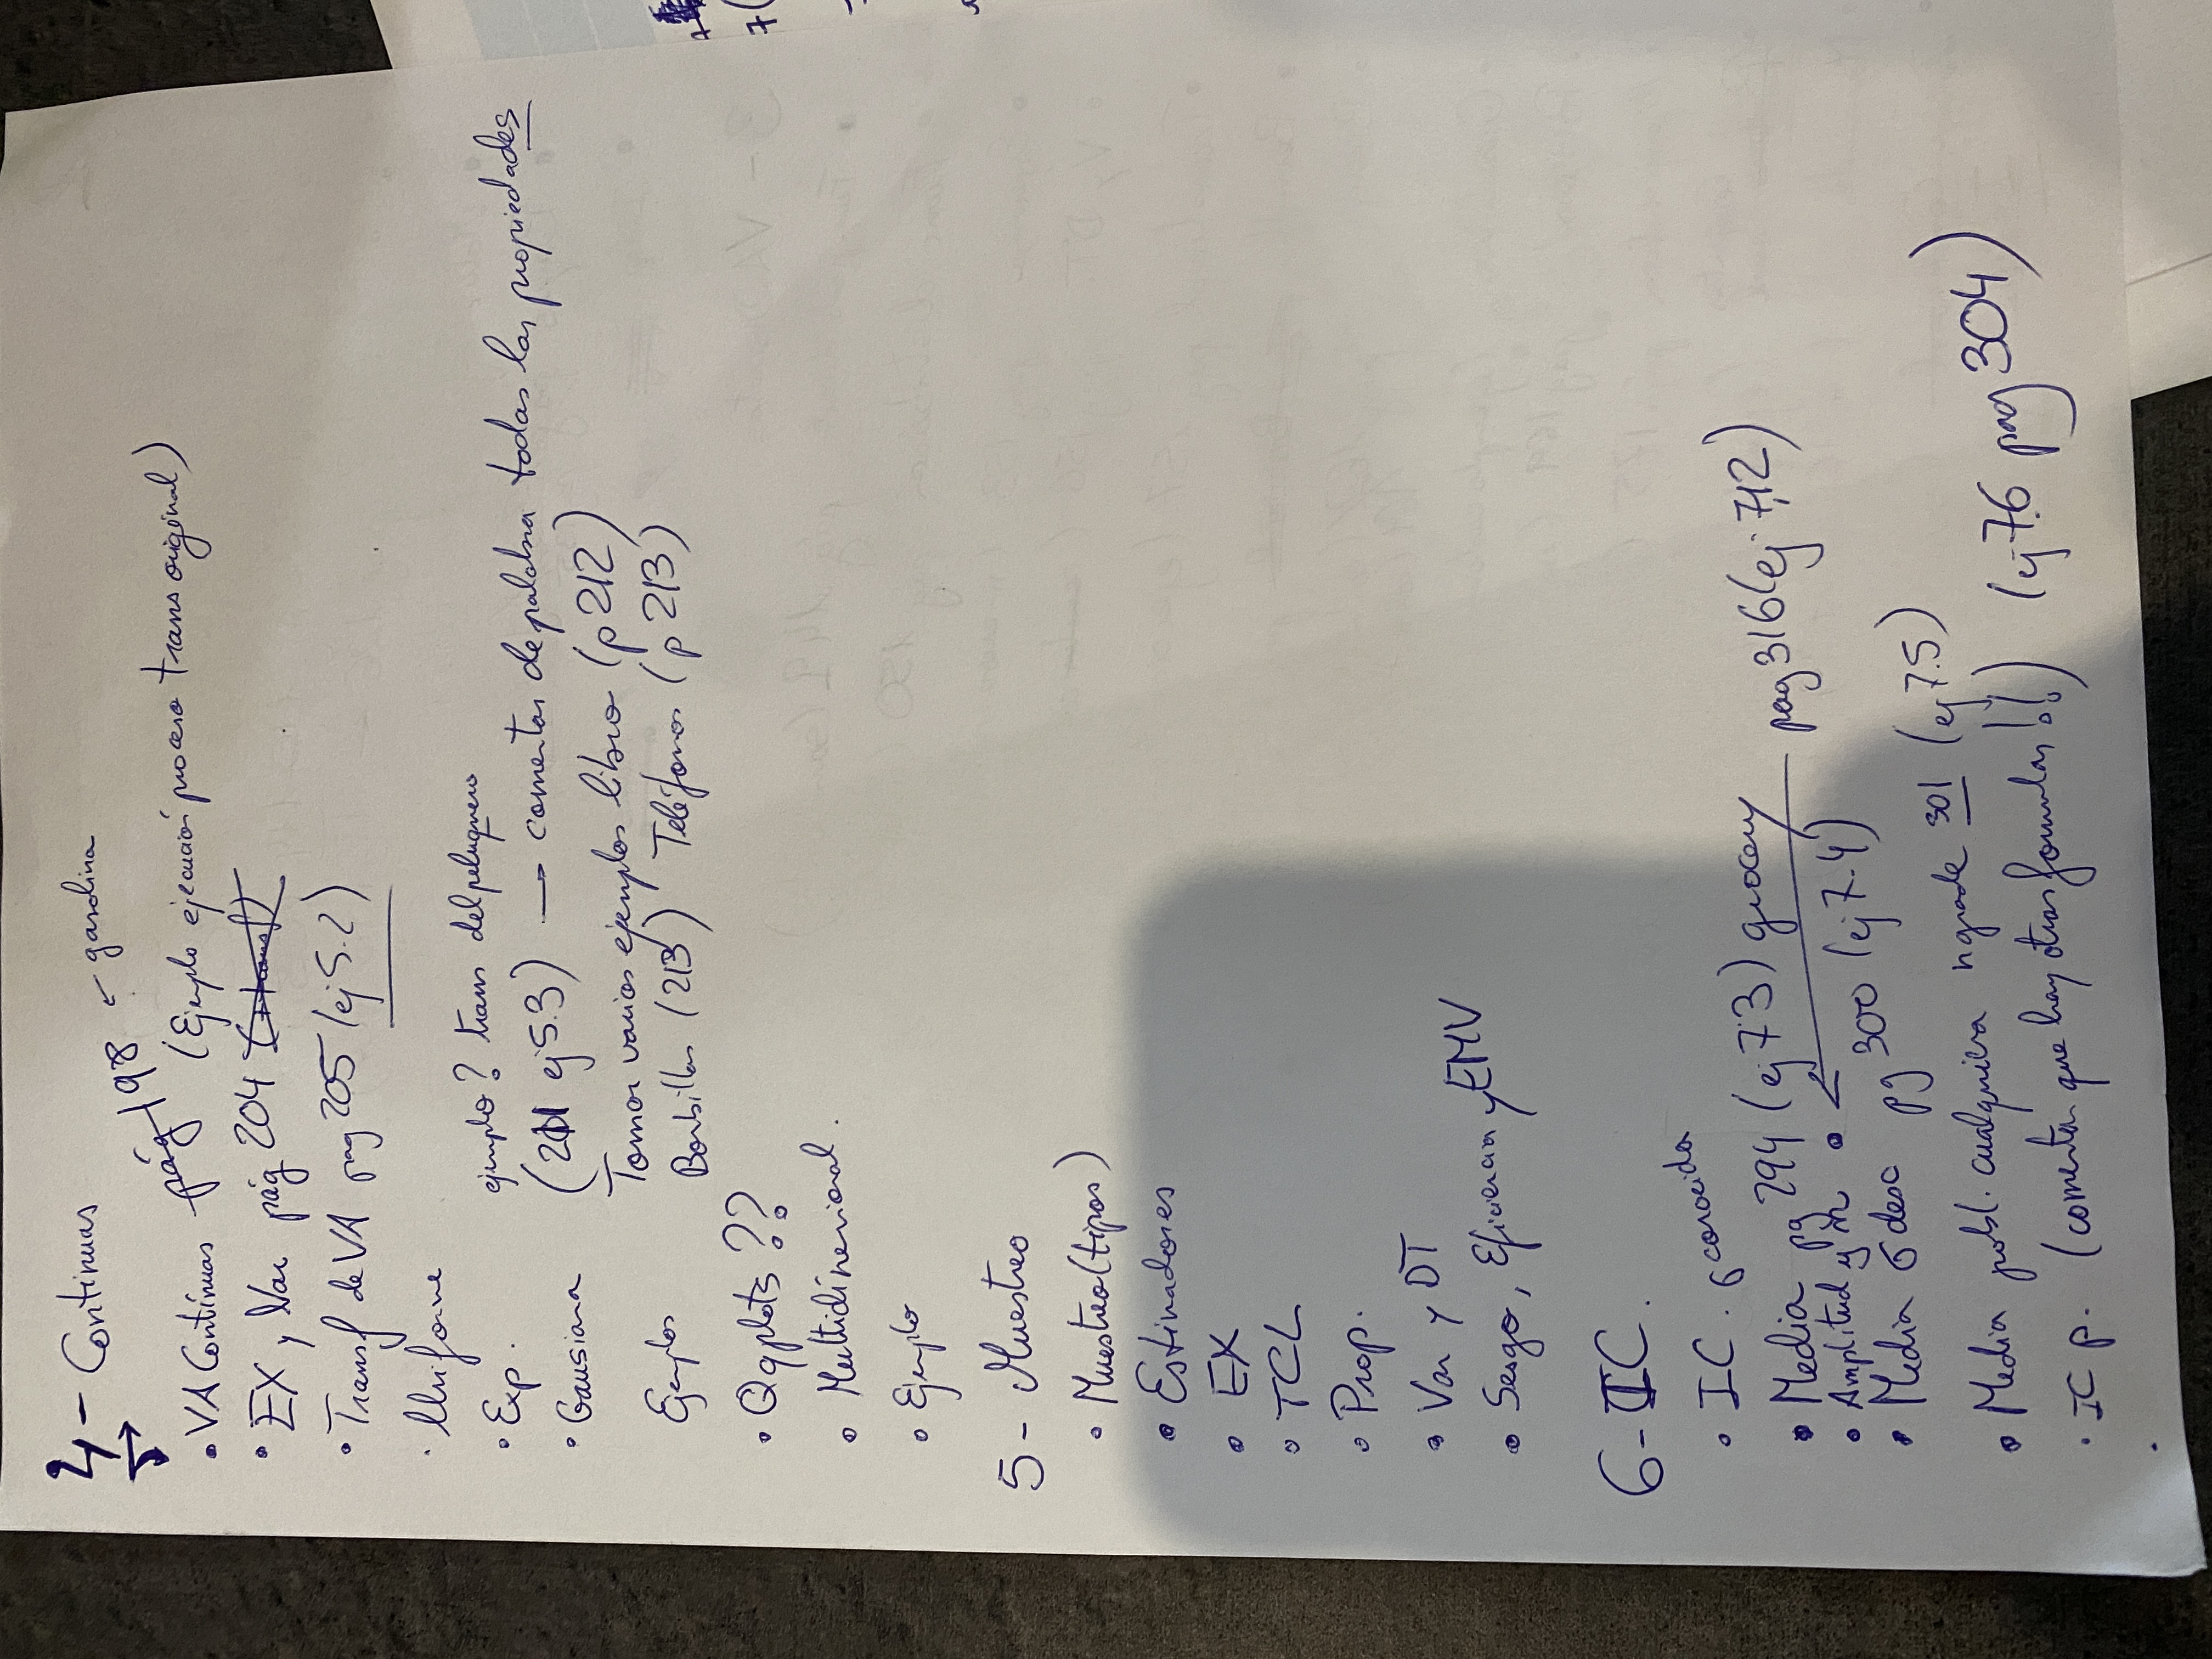 4 - Continuas
5
• VA Contínuas pág 198 ← gasolina
(Ejemplo ejecución proceso trans original)
• EX y Var pág 204 (+transf)
• Transf de VA pag 205 (ej 5.2)
• Uniforme
• Exp. ejemplo? trans del peluquero
• Gausiana (211 ej 5.3) → comentar de palabra todas las propiedades
Tomar varios ejemplos libro (p 212)
Ejemplos Bonbillas (213) Teléfonos (p 213)
• Qqplots ??
• Multidimensional.
• Ejemplo
5 - Muestreo
• Muestreo (tipos)
• Estimadores
• EX
• TCL
• Prop.
• Var y DT
• Sesgo, Eficiencia y EMV
6 - IC.
• IC. σ conocida
• Media pg 294 (ej 7.3) grocery
pag 316 (ej 7.12)
• Amplitud y n • ←
• Media σ desc pg 300 (ej 7.4)
• Media pobl. cualquiera n grade 301 (ej 7.5)
• IC p. (comentar que hay otras formulas!!) (ej 7.6 pag 304)